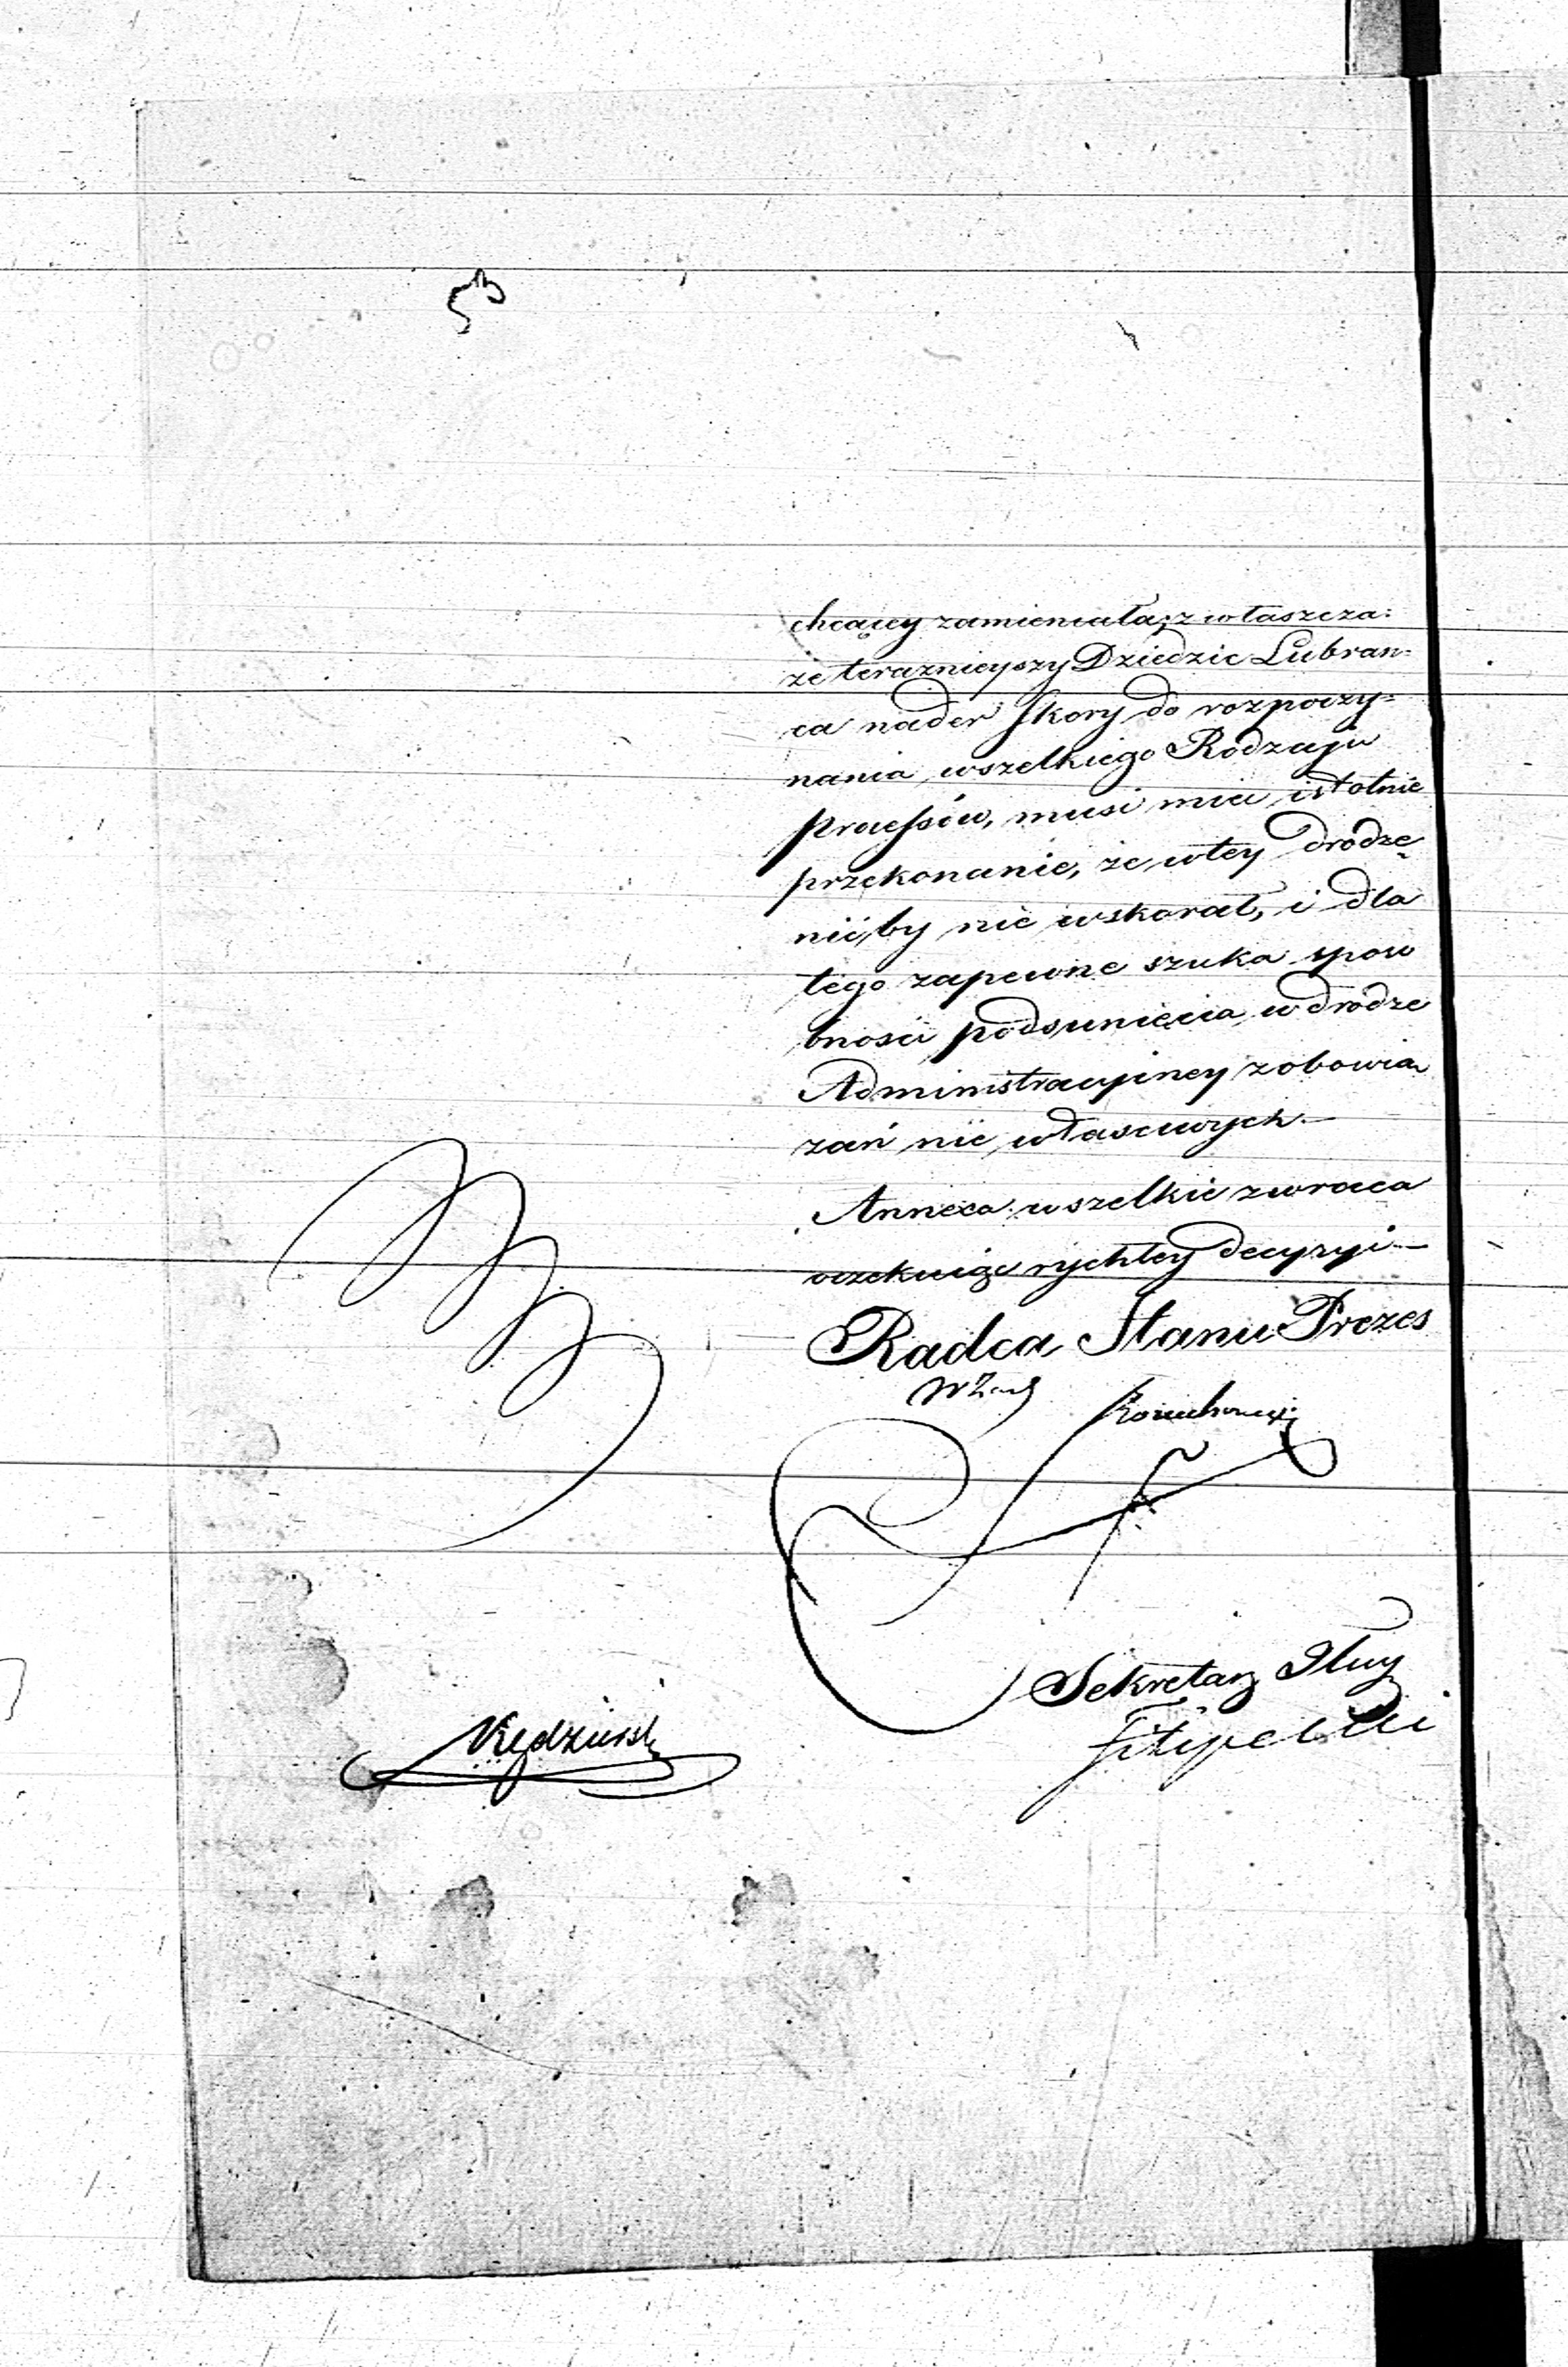 chcącey zamieniała; zwłaszcza:
że teraznieyszy Dziedzic Lubran=
ca nader skory do rozpoczy=
nania wszelkiego Rodzaju
processów, musi mieć istotnie
przekonanie, że wtey drodzę
nicby nie wskorał, i dla
tego zapewne szuka spow
bności podsunięcia w drodze
Administracyiney zobowią
zań nie własciwych.—
Annexa wszelkie zwraca
oczekuiąc rychłey decyzyi—
Radca Stanu Prezes
w Zast
Sekretarz Jlny
Filipecki